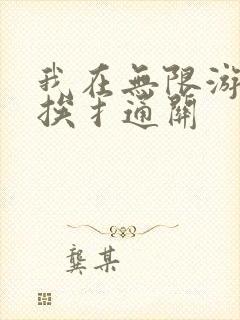 我在無限游
挨扌通關
龔某